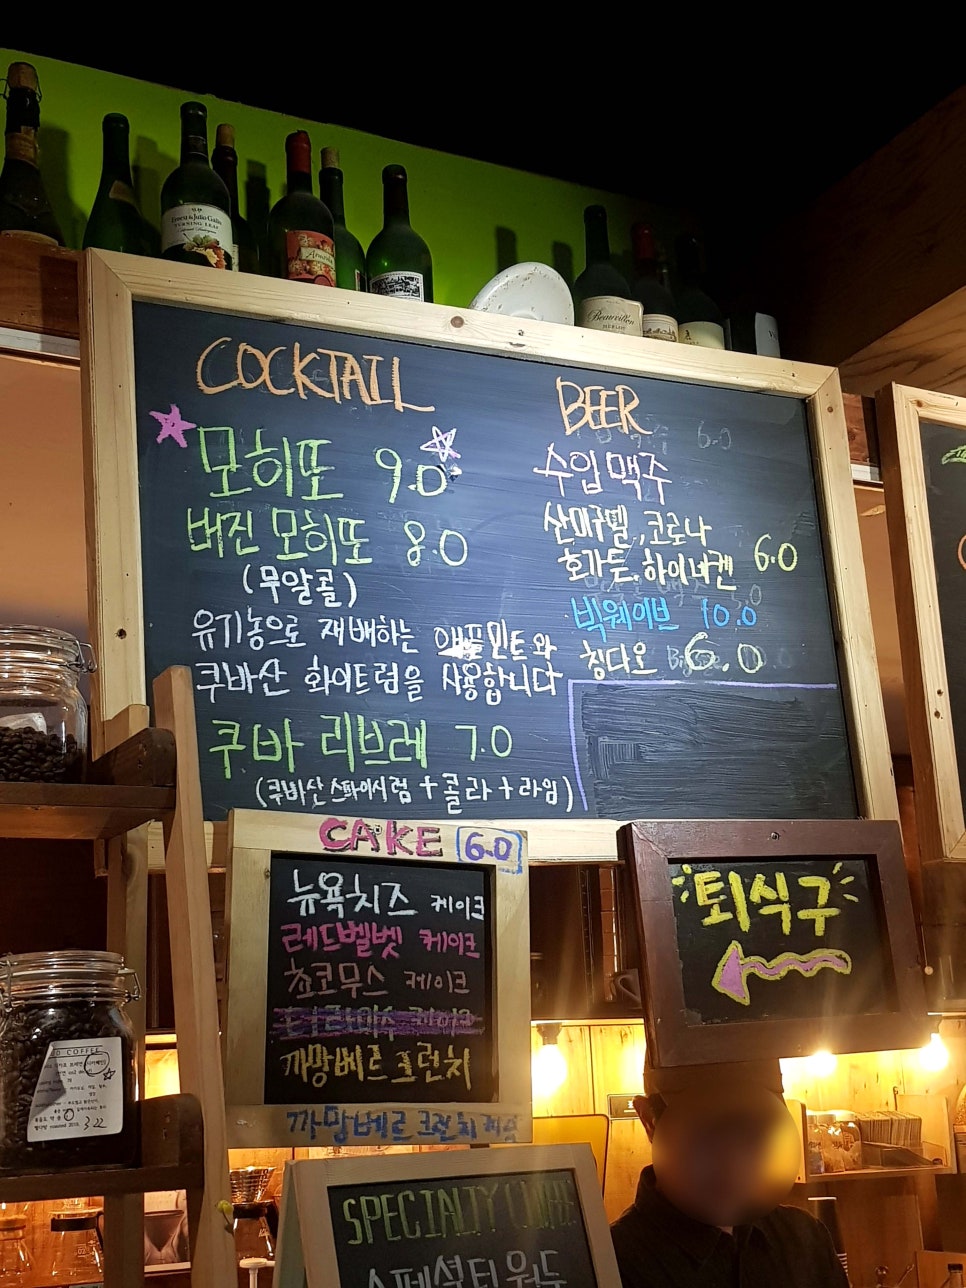 COCKTAIL
모히또 9.0
버진 모히또 8.0
(무알콜)
유기농으로 재배하는 애플민트와
쿠바산 화이트럼을 사용합니다
쿠바 리브레 7.0
(쿠바산 스파이시럼 + 콜라 + 라임)
BEER
수입맥주
산미구엘, 코로나
호가든, 하이네켄 6.0
빅웨이브 10.0
칭다오 6.0
CAKE 6.0
뉴욕치즈 케이크
레드벨벳 케이크
쵸코무스 케이크
티라미수 케이크
까망베르 크런치
까망베르 크런치
퇴식구
SPECIALTY COFFEE
스페셜티 원두
TURNING LEAF
Beauvillon
MERLOT
COFFEE
3.22